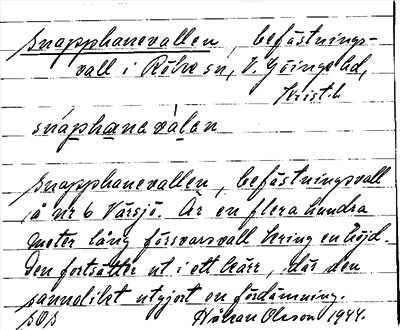 snapphanevallen, befästnings-
vall i Röke sn, V. Göinge hd,
Krist. l.
snáphanevàlen
snapphanevallen, befästningsvall
å nr 6 Värsjö. Är en flera hundra
meter lång försvarsvall kring en höjd.
Den fortsätter ut i ett kärr, där den
sannolikt utgjort en fördämning.
Håkan Olsson 1944.